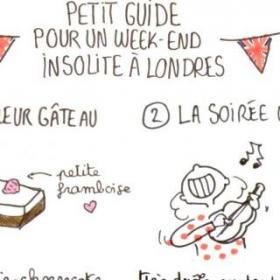 PETIT GUIDE
POUR UN WEEK-END
INSOLITE À LONDRES
EUR GÂTEAU
② LA SOIRÉE
petite
framboise
cheesecake